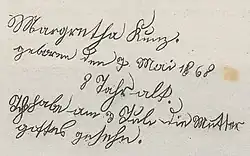 Margretha Kunz.
geboren den 9 Mai 1868
8 Jahr alt.
Ich habe am 3 Juli die Mutter
gottes gesehn.